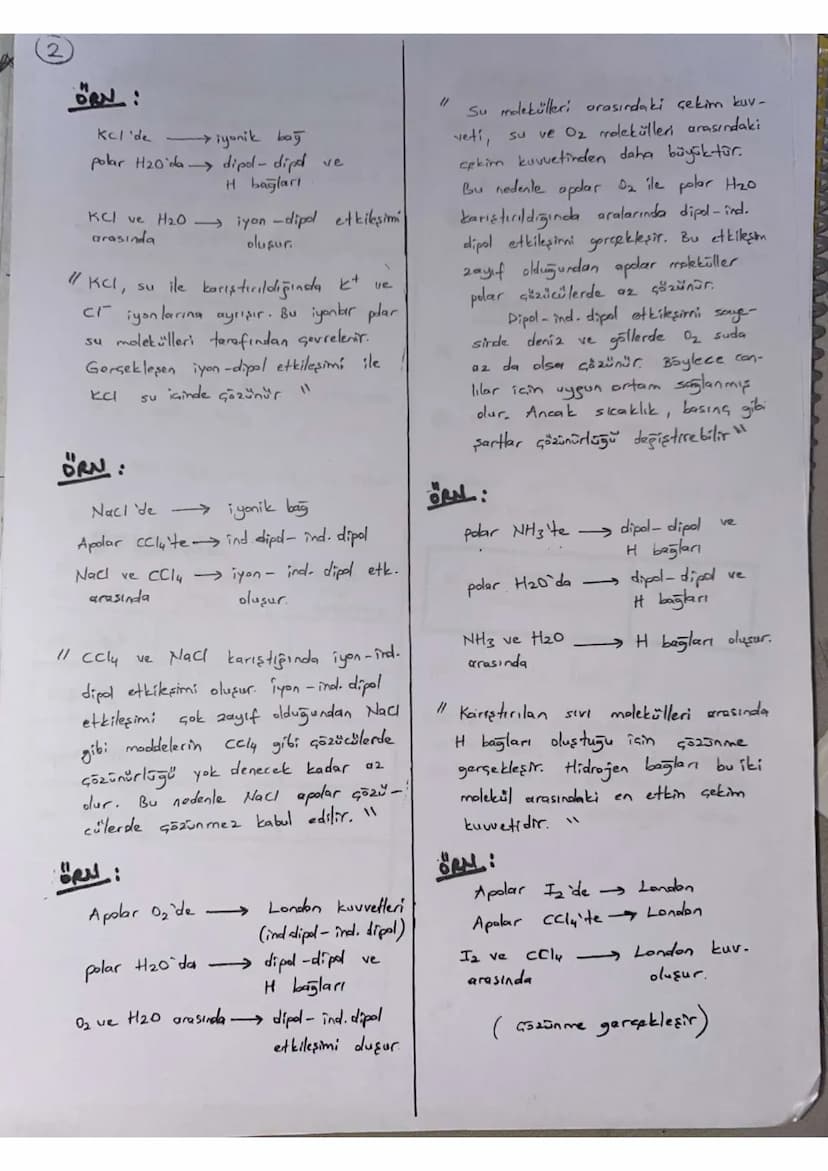 2
ÖRN :
KCl'de → iyonik bağ
polar H2O'da → dipol-dipol ve
H bağları
KCl ve H2O → iyon-dipol etkileşimi
arasında oluşur.
" KCl, su ile karıştırıldığında K+ ve
Cl- iyonlarına ayrışır. Bu iyonlar polar
su molekülleri tarafından çevrelenir.
Gerçekleşen iyon-dipol etkileşimi ile
KCl su içinde çözünür "
ÖRN :
NaCl'de → iyonik bağ
Apolar CCl4'te → ind dipol- ind. dipol
NaCl ve CCl4 → iyon- ind. dipol etk.
arasında oluşur.
" CCl4 ve NaCl karıştığında iyon-ind.
dipol etkileşimi oluşur. İyon-ind. dipol
etkileşimi çok zayıf olduğundan NaCl
gibi maddelerin CCl4 gibi çözücülerde
çözünürlüğü yok denecek kadar az
olur. Bu nedenle NaCl apolar çözü-
cülerde çözünmez kabul edilir. "
ÖRN :
Apolar O2'de → London kuvvetleri
(ind dipol- ind. dipol)
polar H2O'da → dipol-dipol ve
H bağları
O2 ve H2O arasında → dipol- ind. dipol
etkileşimi oluşur
" Su molekülleri arasındaki çekim kuv-
veti, su ve O2 molekülleri arasındaki
çekim kuvvetinden daha büyüktür.
Bu nedenle apolar O2 ile polar H2O
karıştırıldığında aralarında dipol-ind.
dipol etkileşimi gerçekleşir. Bu etkileşim
zayıf olduğundan apolar moleküller
polar çözücülerde az çözünür.
Dipol-ind. dipol etkileşimi saye-
sinde deniz ve göllerde O2 suda
az da olsa çözünür. Böylece can-
lılar için uygun ortam sağlanmış
olur. Ancak sıcaklık, basınç gibi
şartlar çözünürlüğü değiştirebilir "
ÖRN :
polar NH3'te → dipol-dipol ve
H bağları
polar H2O'da → dipol-dipol ve
H bağları
NH3 ve H2O → H bağları oluşur.
arasında
" Karıştırılan sıvı molekülleri arasında
H bağları oluştuğu için çözünme
gerçekleşir. Hidrojen bağları bu iki
molekül arasındaki en etkin çekim
kuvvetidir. "
ÖRN :
Apolar I2'de → London
Apolar CCl4'te → London
I2 ve CCl4 → London kuv.
arasında oluşur.
( çözünme gerçekleşir)